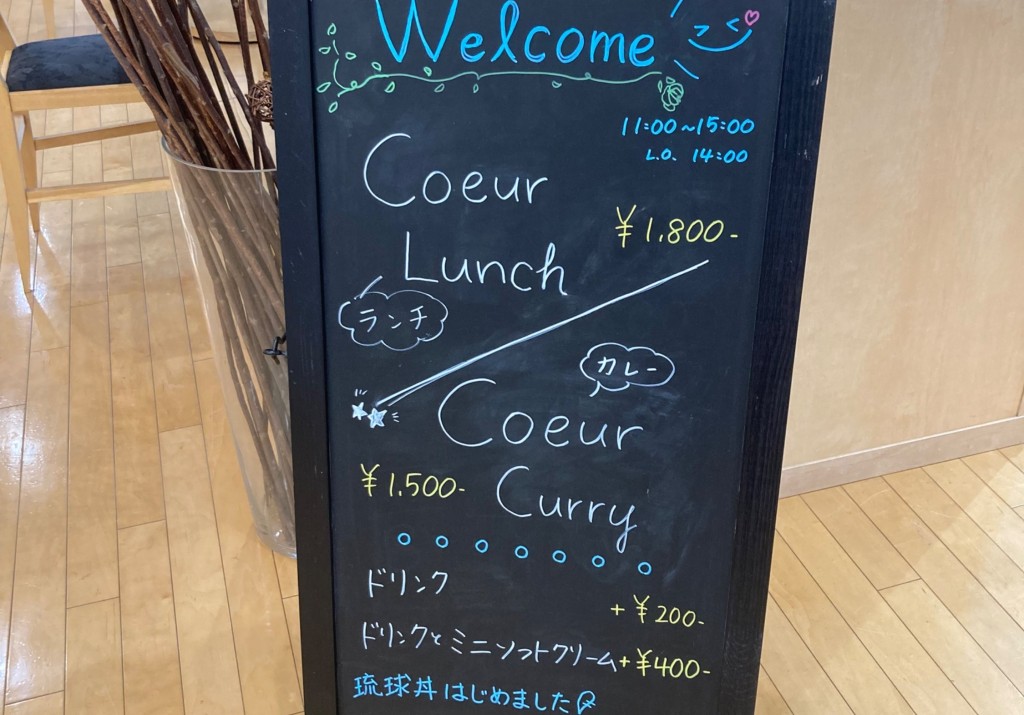 Welcome
11:00~15:00
L.O. 14:00
Coeur
¥1.800-
Lunch
ランチ
カレー
Coeur
¥1.500-
Curry
ドリンク
+¥200-
ドリンクとミニソフトクリーム+¥400-
琉球丼はじめました